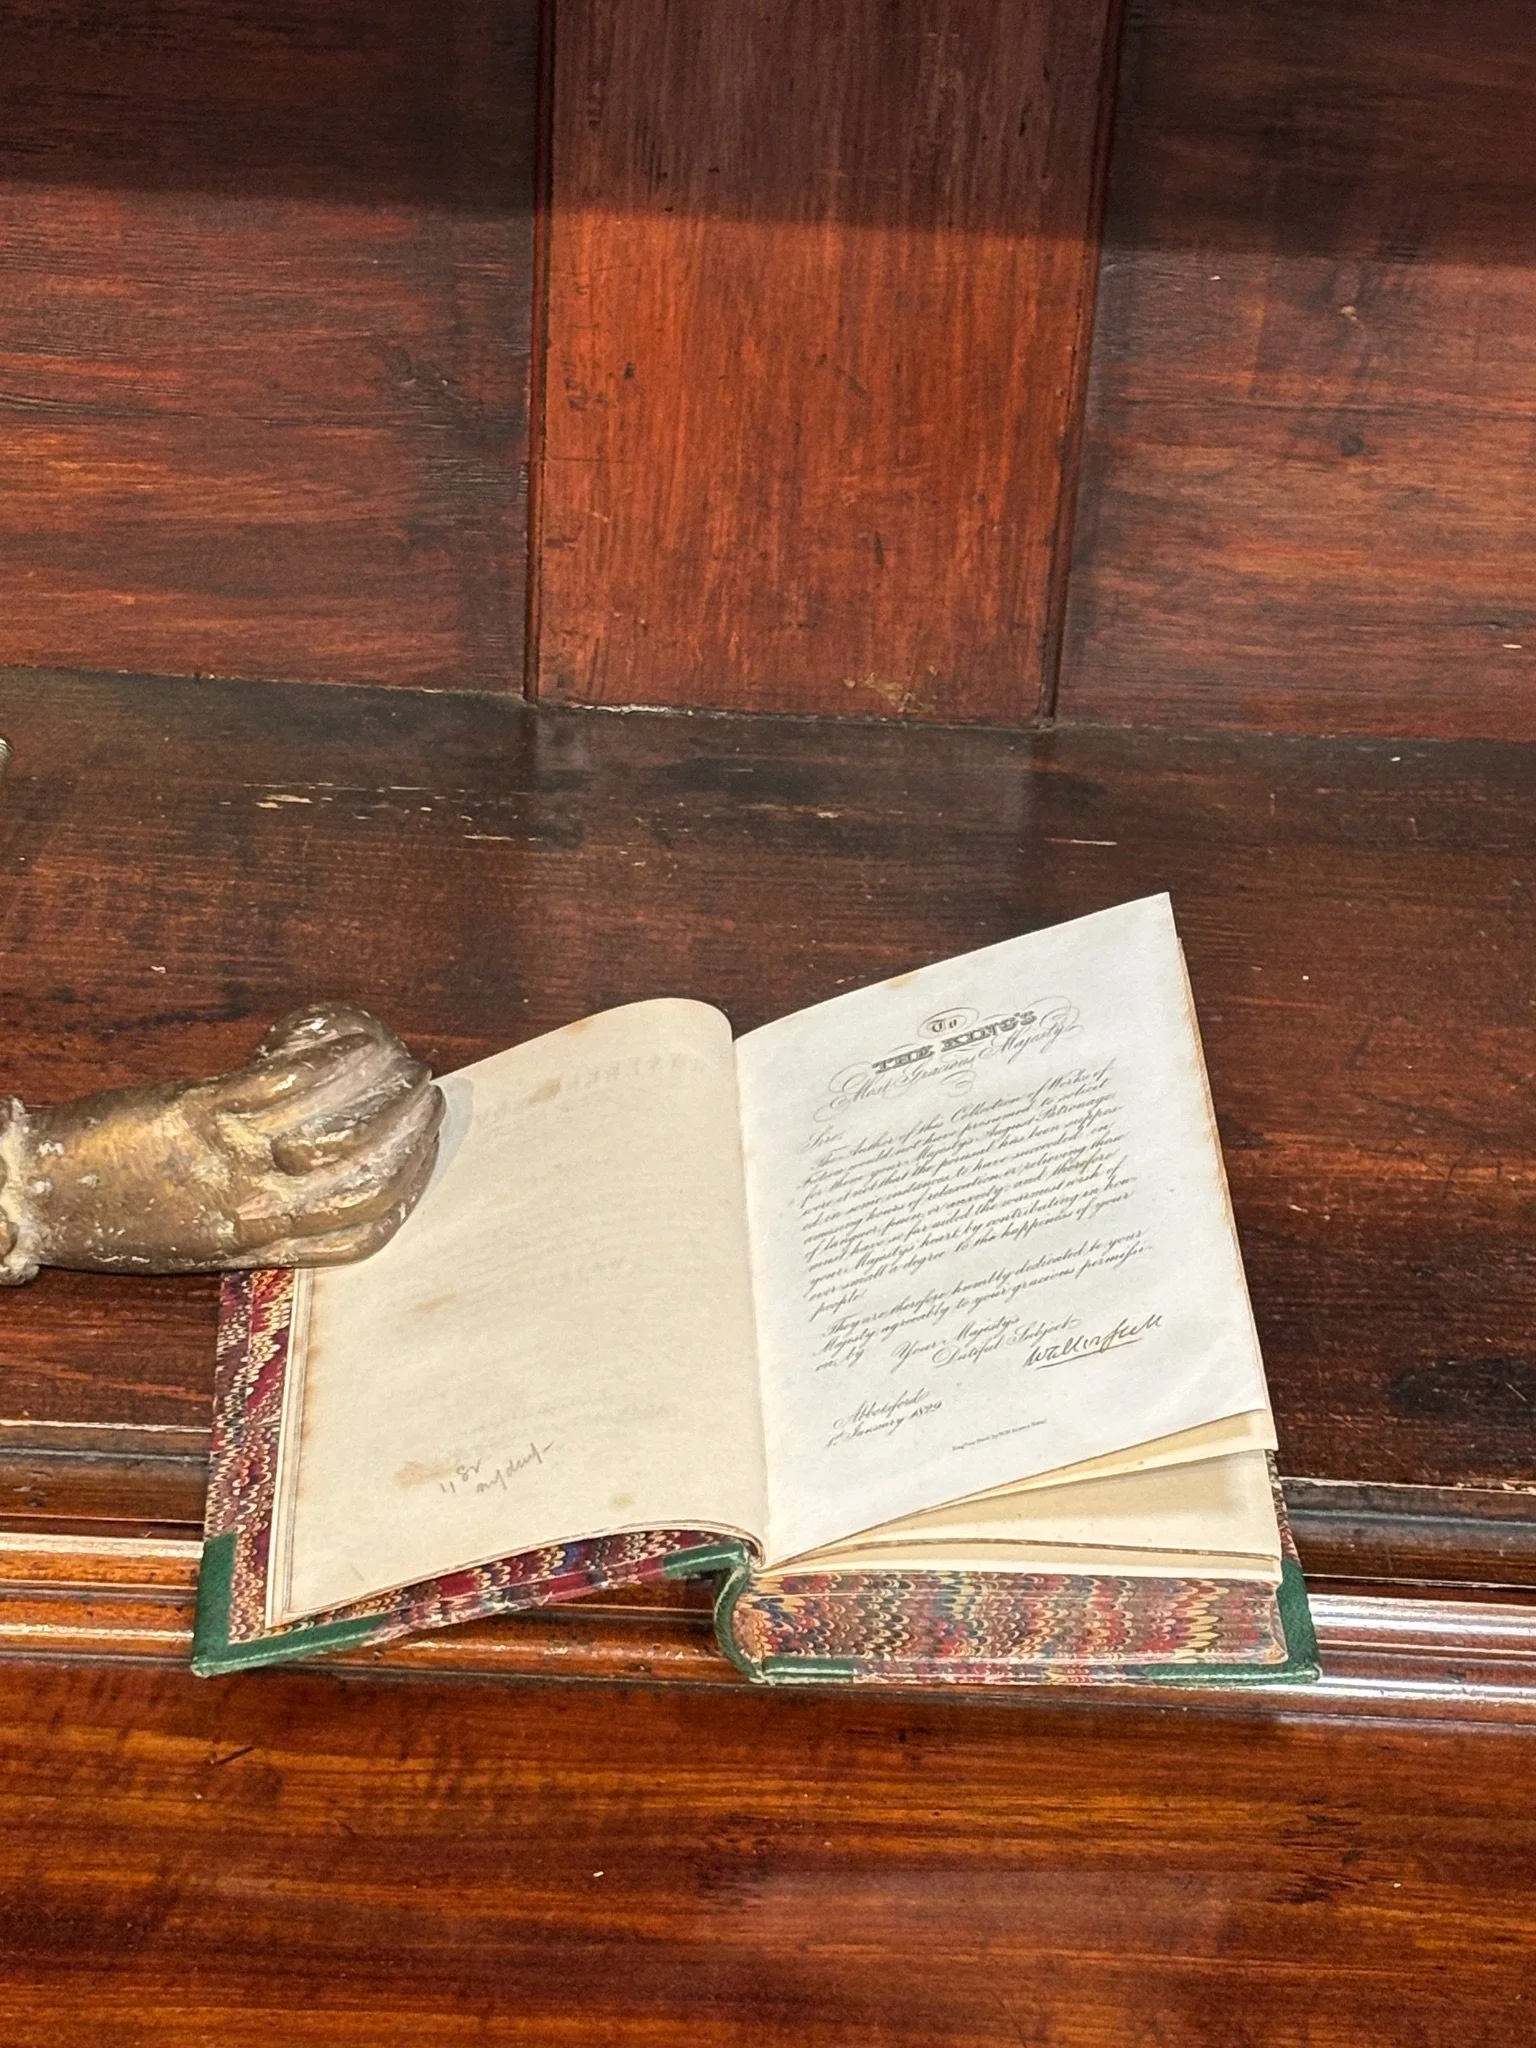 To
THE KING'S
Most Gracious Majesty.
Sire,
The Author of this Collection of Works of
Fiction would not have presumed to solicit
for them your Majesty's August Patronage
were it not that the perusal has been suppos-
ed in some instances, to have succeeded in
amusing hours of relaxation, or relieving those
of languor, pain, or anxiety; and therefore
must have so far aided the warmest wish of
your Majesty's heart, by contributing in how-
ever small a degree to the happiness of your
people.
They are therefore humbly dedicated to your
Majesty, agreeably to your gracious permissi-
on, by
Your Majesty's
Dutiful Subject
Walter Scott
Abbotsford
1st January 1829